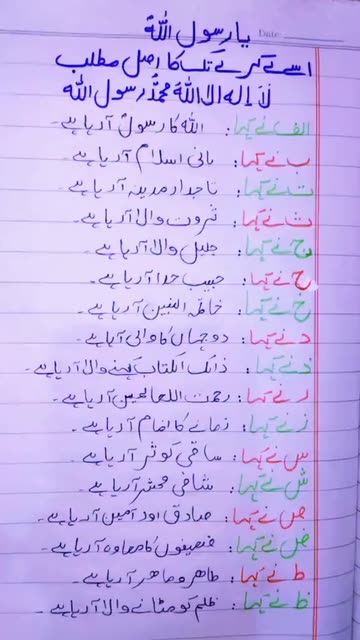 یا رسول اللہؐ
Date:
اسے لے کر ے تک کا اصل مطلب
لَا اِلٰہ الا اللہُ محمدُ رسول اللہ
الف نے کہا: اللہ کا رسولؐ آ رہا ہے۔
ب نے کہا: بانی اسلام آ رہا ہے۔
ت نے کہا: تاجدار مدینہ آ رہا ہے۔
ث نے کہا: ثروت والا آ رہا ہے۔
ج نے کہا: جلیل والا آ رہا ہے۔
ح نے کہا: حبیب خدا آ رہا ہے۔
خ نے کہا: خاتم النبین آ رہا ہے۔
د نے کہا: دو جہاں کا والی آ رہا ہے۔
ذ نے کہا: ذالک الکتاب کہنے والا آ رہا ہے۔
ر نے کہا: رحمت اللعالمین آ رہا ہے۔
ز نے کہا: زمانے کا امام آ رہا ہے۔
س نے کہا: ساقی کوثر آ رہا ہے۔
ش نے کہا: شافی محشر آ رہا ہے۔
ص نے کہا: صادق اور آمین آ رہا ہے۔
ض نے کہا: ضعیفوں کا آ رہا ہے۔
ط نے کہا: طاہر و ماہر آ رہا ہے۔
ظ نے کہا: ظلم کو مٹانے والا آ رہا ہے۔